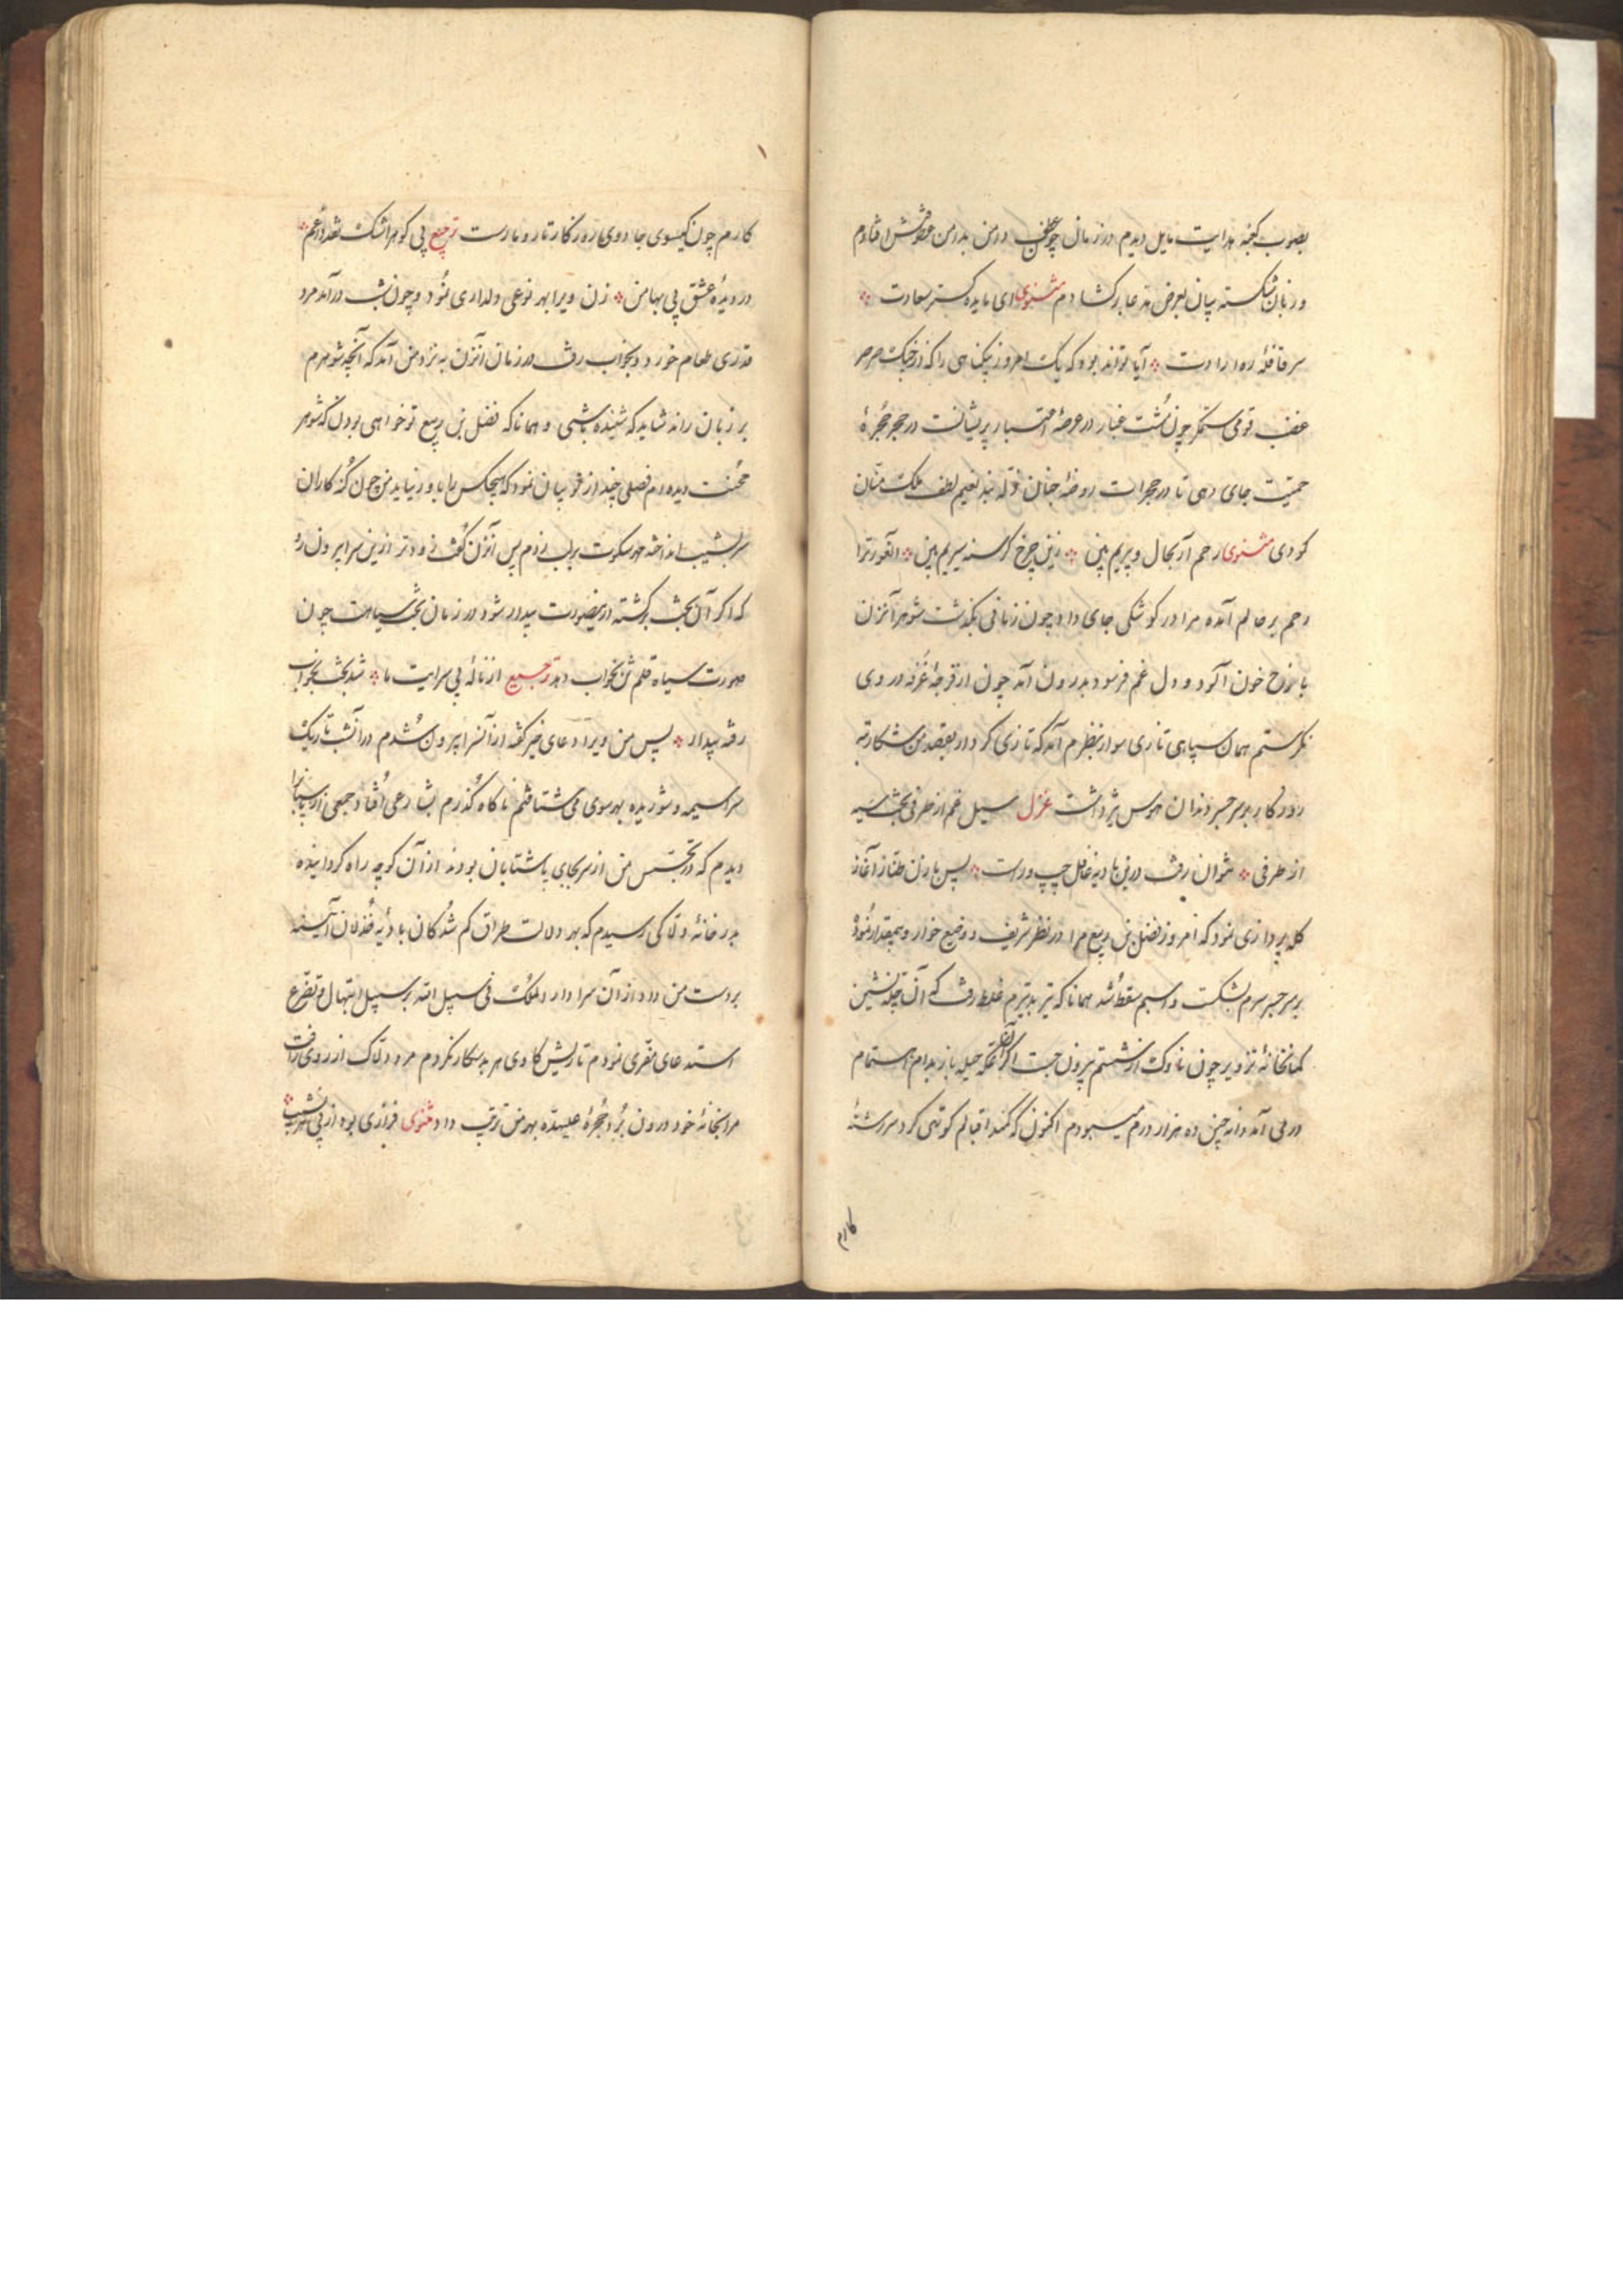 بصوب کعبه هدایت مایل دیدم در زمان چو عطف دامن بدامن عطوفتش افتادم
و زبان شکسته بیان بعرض مدعا برگشادم مثنوی ای مایده گستر سعادت
سر قافله ره ارادت آیا تواند بود که یک امروز بیگناهی را که از چنگ صرصر
غضب قومی ستمگر چون مشت غبار در عرصه اختیار پریشانست در حجر حجره
حمیت جای دهی تا در حجرات روضه جنان نعیم لطف ملک منان
گردی مثنوی رحم آر بحال و پیریم بین زین چرخ گرسنه سیریم بین آنعورت را
رحم بر حالم آمده مرا در گوشکی جای داد چون زمانی بگذشت شوهر آنزن
با رخ خون آلود و دل غم فرسود بدرون آمد چون از فرجه غرفه در وی
نگرستم همان سپاهی تازی سوار بنظرم آمد که تازی کردار بقصد من شکار تبه
روزگار بر سر جسر دندان هوس تیز داشت غزل سیل غم از طرفی بخت سیه
از طرفی نتوان رفت درین بادیه غافل چپ و راست پس با زن طناز آغاز
گله پردازی نمود که امروز فضل بن ربیع مرا در نظر شریف و وضیع خوار و بیمقدار نموده
بر سر جسر سرم بشکست و اسبم سقط شد همانا که تیر تدبیرم غلط رفت که آن چله نشین
کمانخانه تزویر چون ناوک از شستم بیرون جست اگر آن تکه حیله باز بدام اهتمام
در می آمد دانه چین ده هزار درم میبودم اکنون که کمند اقبالم کوتهی کرد سررشته
کارم
کارم چون گیسوی جادوی روزگار تار و مارست ترجیع پی گوهر اشک نقد دارم
در دیده عشق بی بها من زن ویرا بهر نوعی دلداری نمود و چون شب درآمد مرد
قدری طعام خورد و بخواب رفت در زمان آنزن به نزد من آمد که آنچه شوهرم
بر زبان راند شاید که شنیده باشی و همانا که فضل بن ربیع تو خواهی بودن که شوهر
محنت دیده ام فصلی چند از تو بیان نمود که هیچکس را باور نیاید من چون گنه کاران
سر بشیب انداخته مهر سکوت بر لب زدم پس آنزن گفت زودتر ازین سرا بیرون رو
که اگر آن بخت برگشته ازینصورت بیدار شود در زمان بخت سیاهت چون
صورت سیاه قلم تن بخواب دهد ترجیع از ناله بی سرایت ما شد بخت بخواب
رفته بیدار پس من ویرا دعای خیر گفته از آنسرا بیرون شدم در آنشب تاریک
سراسیمه و شوریده بهر سوی می شتافتم ناگاه گذرم بشارعی افتاد جمعی از سپاه را
دیدم که در تجسس من از سر بجای پا شتابان بودند از آن کوچه راه گردانیده
بدر خانه دلاکی رسیدم که بهر دلالت طراق گم شدگان بادیه خذلان آیینه
بر دست من داد از آن سرا دار املک فی سبیل الله بر سبیل ابتهال و تضرع
استدعای مفری نمودم تا ریش گاوی هر بد سگار نگردم مرد دلاک از روی رافت
مرا بخانه خود درون برد و حجره علیحده بهر من ترتیب داد مثنوی فرازی بود از پی هر نشیب